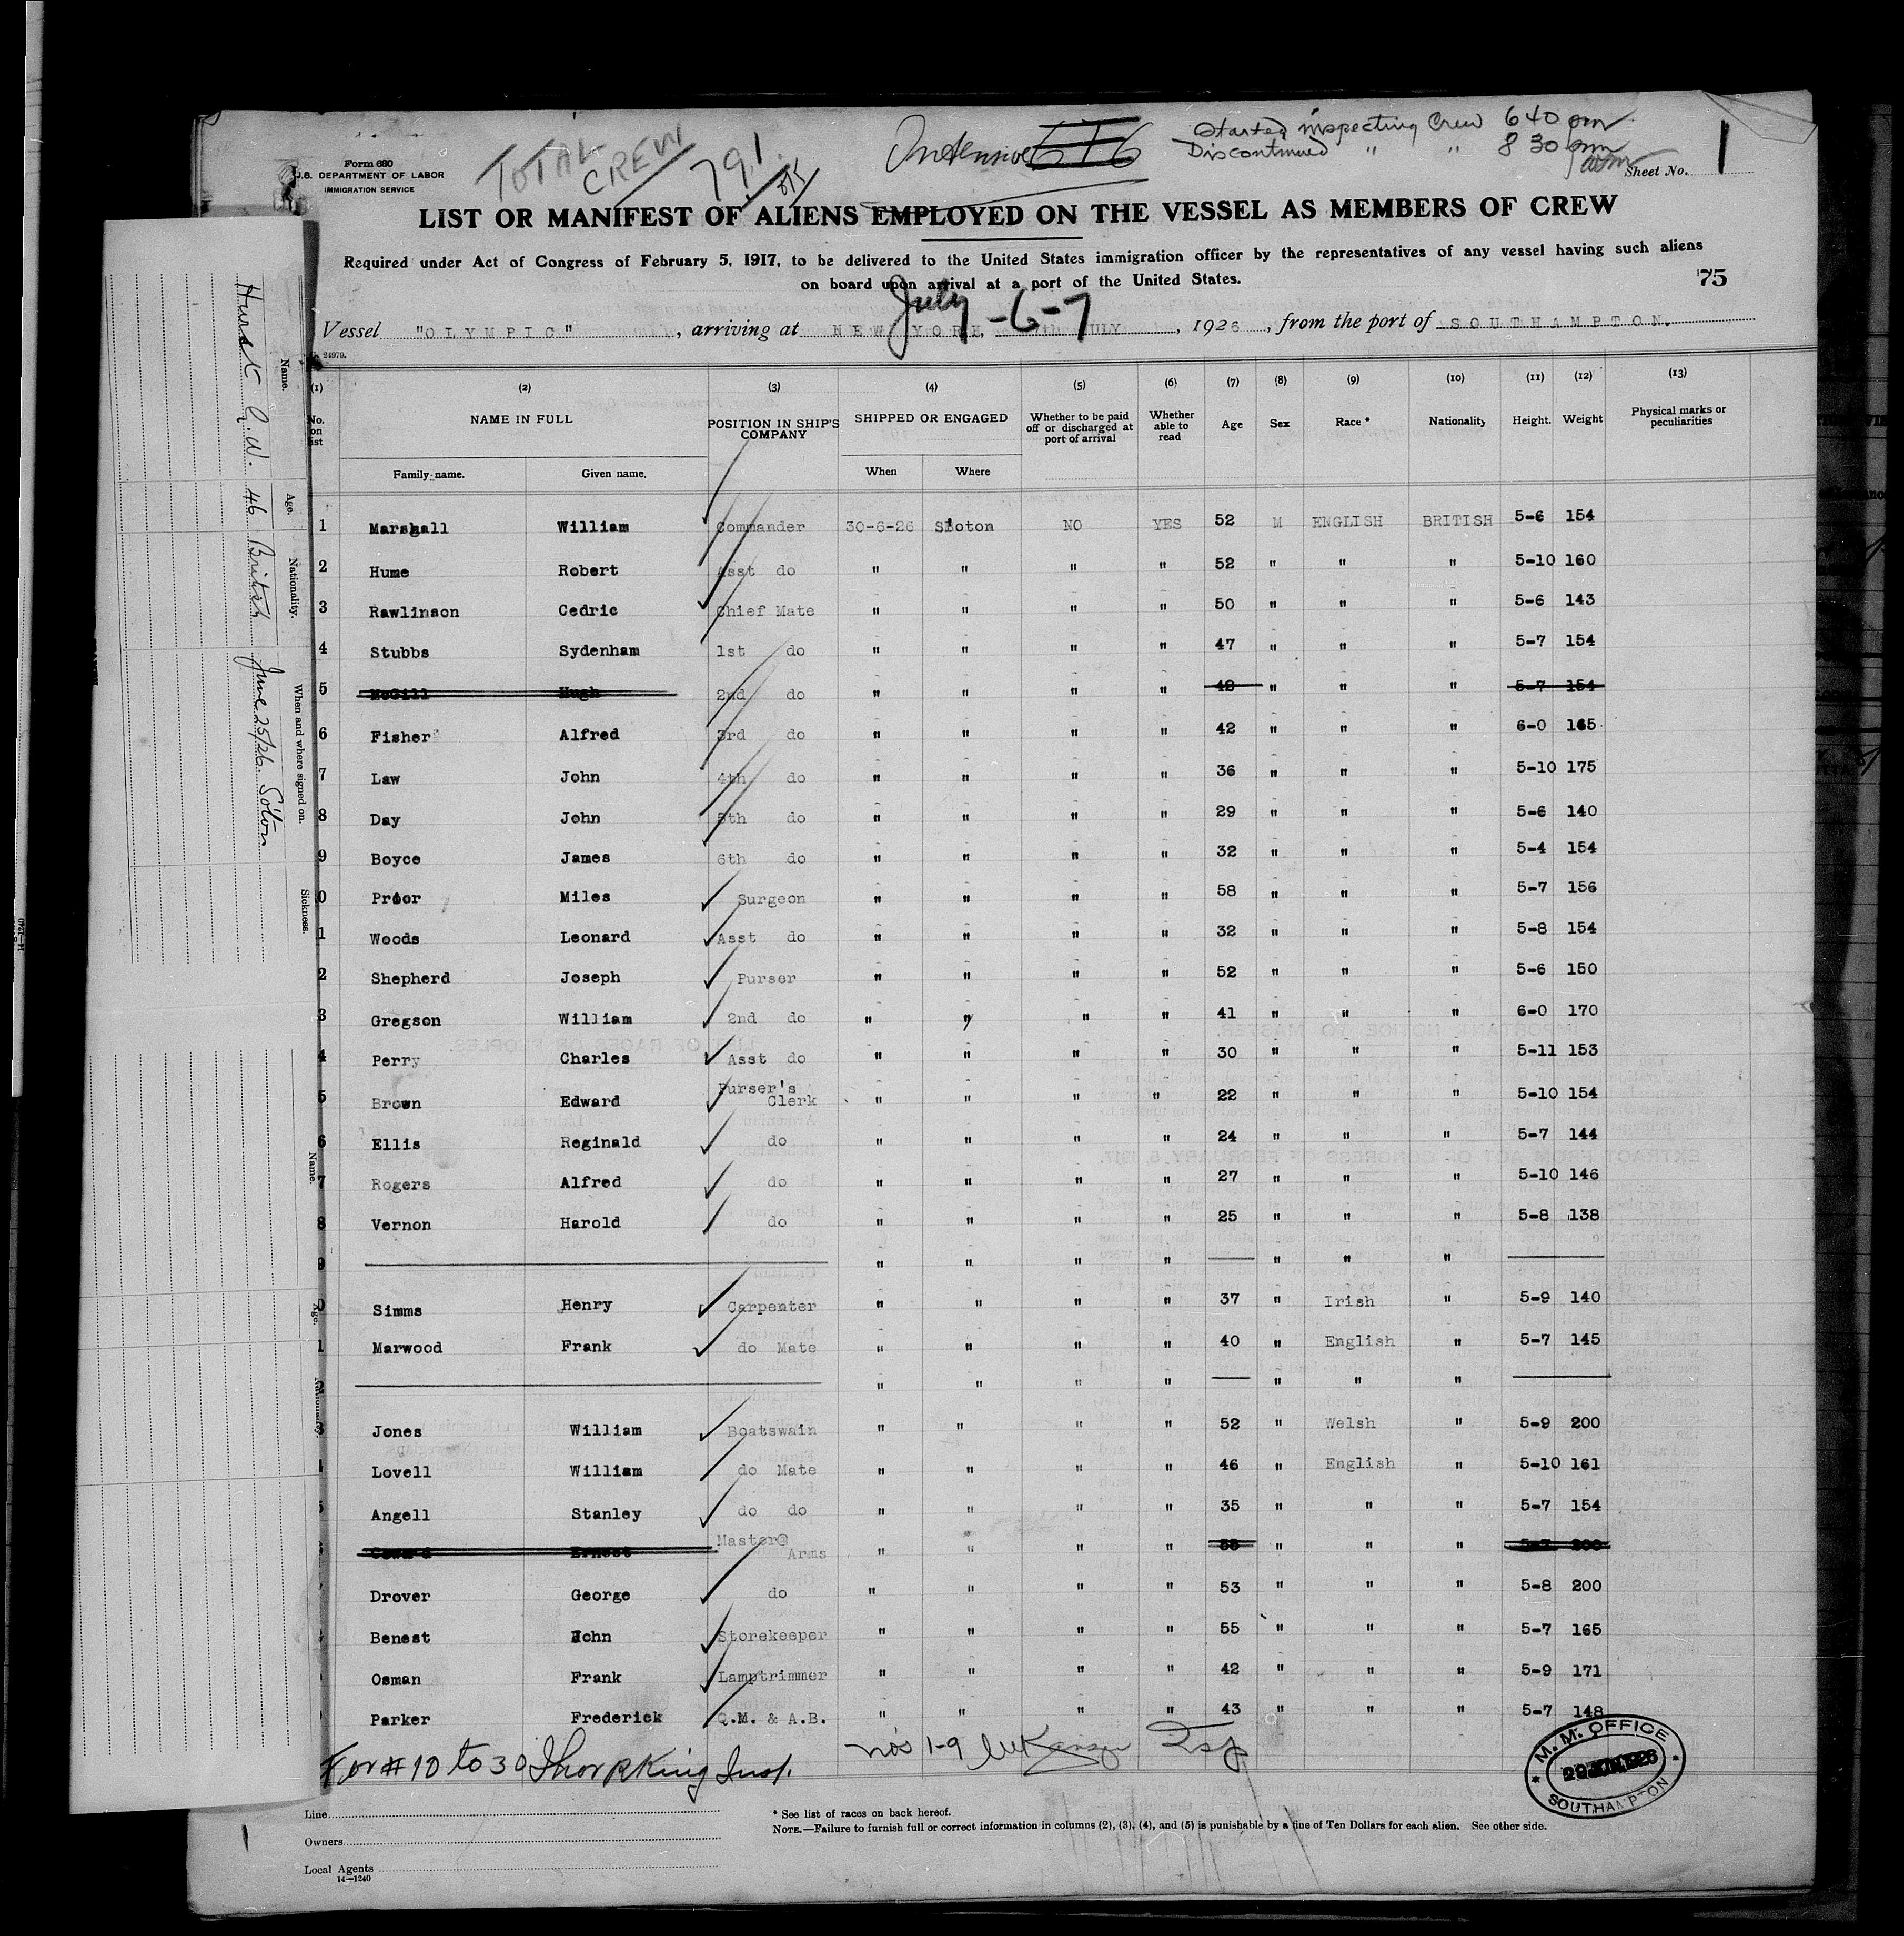 TOTAL CREW 791 OK
Intensive
Started inspecting Crew 640 pm
Discontinued " " 8 30 pm
Form 680
U.S. DEPARTMENT OF LABOR
IMMIGRATION SERVICE
Sheet No. 1
LIST OR MANIFEST OF ALIENS EMPLOYED ON THE VESSEL AS MEMBERS OF CREW
Required under Act of Congress of February 5, 1917, to be delivered to the United States immigration officer by the representatives of any vessel having such aliens
on board upon arrival at a port of the United States.
175
July -6-7
Vessel "OLYMPIC", arriving at NEW YORK, JULY, 1926, from the port of SOUTHAMPTON.
24979.
(1) (2) (3) (4) (5) (6) (7) (8) (9) (10) (11) (12) (13)
No. on list NAME IN FULL POSITION IN SHIP'S COMPANY SHIPPED OR ENGAGED Whether to be paid off or discharged at port of arrival Whether able to read Age Sex Race * Nationality Height. Weight Physical marks or peculiarities
Family name. Given name. When Where
1 Marshall William Commander 30-6-26 Soton NO YES 52 M ENGLISH BRITISH 5-6 154
2 Hume Robert Asst do " " " " 52 " " " 5-10 160
3 Rawlinson Cedric Chief Mate " " " " 50 " " " 5-6 143
4 Stubbs Sydenham 1st do " " " " 47 " " " 5-7 154
5 McGill Hugh 2nd do " " " " " " " 5-7 154
6 Fisher Alfred 3rd do " " " " 42 " " " 6-0 165
7 Law John 4th do " " " " 36 " " " 5-10 175
8 Day John 5th do " " " " 29 " " " 5-6 140
9 Boyce James 6th do " " " " 32 " " " 5-4 154
0 Prior Miles Surgeon " " " " 58 " " " 5-7 156
1 Woods Leonard Asst do " " " " 32 " " " 5-8 154
2 Shepherd Joseph Purser " " " " 52 " " " 5-6 150
3 Gregson William 2nd do " " " " 41 " " " 6-0 170
4 Perry Charles Asst do " " " " 30 " " " 5-11 153
5 Brown Edward Purser's Clerk " " " " 22 " " " 5-10 154
6 Ellis Reginald do " " " " 24 " " " 5-7 144
7 Rogers Alfred do " " " " 27 " " " 5-10 146
8 Vernon Harold do " " " " 25 " " " 5-8 138
9 " " " " " " "
0 Simms Henry Carpenter " " " " 37 " Irish " 5-9 140
1 Marwood Frank do Mate " " " " 40 " English " 5-7 145
2 " " " " " " "
3 Jones William Boatswain " " " " 52 " Welsh " 5-9 200
Lovell William do Mate " " " " 46 " English " 5-10 161
Angell Stanley do do " " " " 35 " " " 5-7 154
Ernest Master@ Arms " " " " " " " 5-7 200
Drover George do " " " " 53 " " " 5-8 200
Benest John Storekeeper " " " " 55 " " " 5-7 165
Osman Frank Lamptrimmer " " " " 42 " " " 5-9 171
Parker Frederick Q.M. & A.B. " " " " 43 " " " 5-7 148
For # 10 to 30 Thor R King Insp.
nos 1-9
M.M. OFFICE
SOUTHAMPTON
Line
Owners
Local Agents
14-1240
* See list of races on back hereof.
NOTE.—Failure to furnish full or correct information in columns (2), (3), (4), and (5) is punishable by a fine of Ten Dollars for each alien. See other side.
Name. Age. Nationality. When and where signed on. Sickness.
Hurst G.W. 46 British June 25/26. Soton
Name.
Age.
14-1240